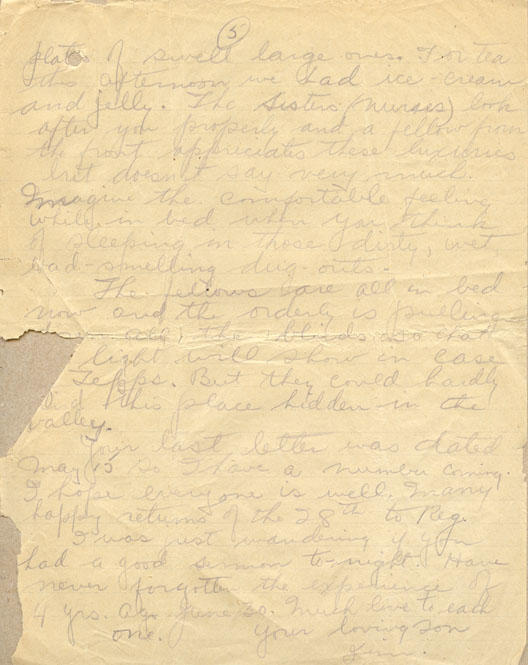 5
plates of swell large ones. For tea
this afternoon we had ice-cream
and jelly. The Sisters (Nurses) look
after you properly and a fellow from
the front appreciates these luxuries
but doesn't say very much.
Imagine the comfortable feeling
while in bed when you think
of sleeping in those dirty, wet
bad-smelling dug-outs.
The fellows are all in bed
now and the orderly is pulling
all the blinds so that
light will show in case
Zepps. But they could hardly
find this place hidden in the
valley.
Your last letter was dated
May 15 so I have a number coming.
I hope everyone is well. Many
happy returns of the 28th to Reg.
I was just wondering if you
had a good sermon to-night. Have
never forgotten the experience of
4 yrs. ago June 30. Much love to each
one. Your loving son